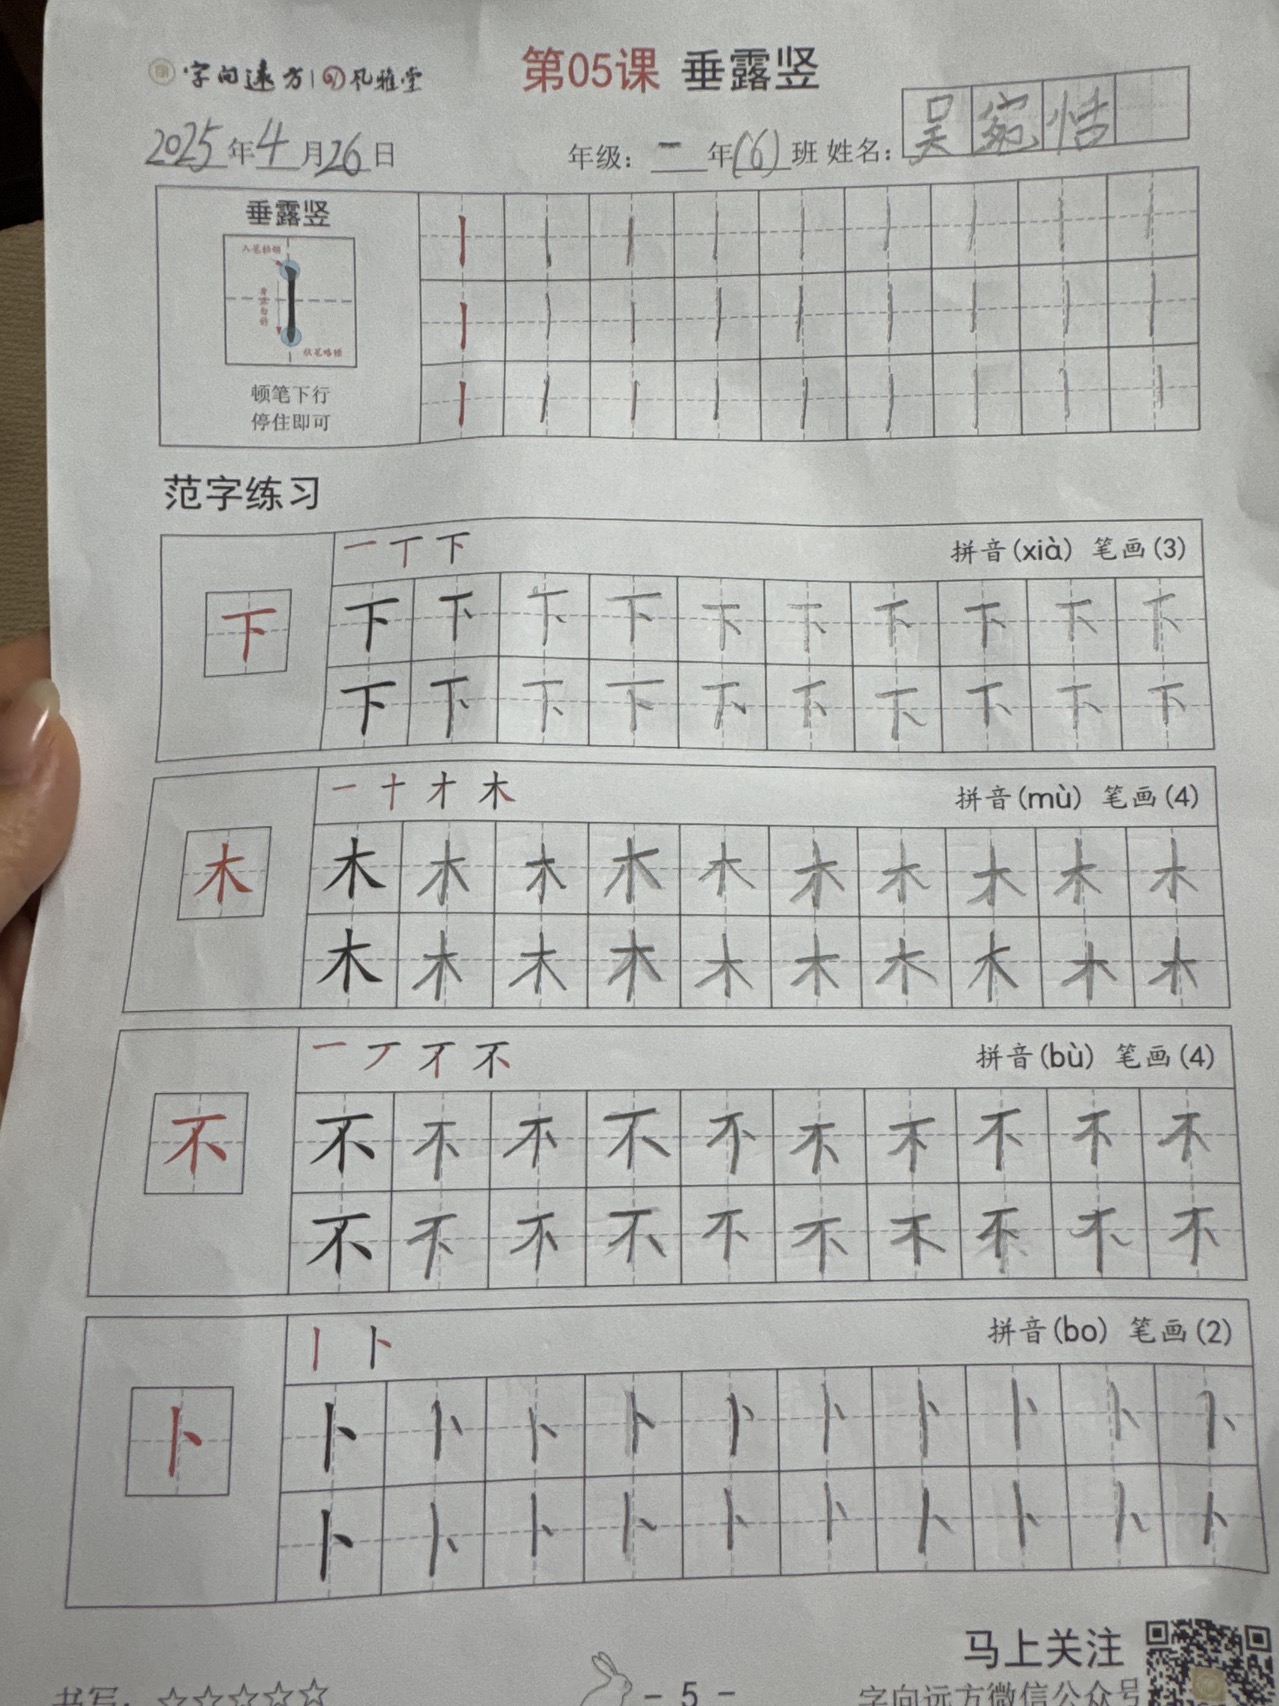 字向远方 风雅堂
第05课 垂露竖
2025年4月26日 年级：一年(6)班 姓名：吴宛恬
垂露竖
入笔稍顿
收笔略顿
顿笔下行
停住即可
范字练习
一 丅 下 拼音(xià) 笔画(3)
下 下 下 下 下 下 下 下 下 下 下
下 下 下 下 下 下 下 下 下 下
一 十 才 木 拼音(mù) 笔画(4)
木 木 木 木 木 木 木 木 木 木 木
木 木 木 木 木 木 木 木 木 木
一 丆 不 拼音(bù) 笔画(4)
不 不 不 不 不 不 不 不 不 不 不
不 不 不 不 不 不 不 不 不 不
丨 卜 拼音(bo) 笔画(2)
卜 卜 卜 卜 卜 卜 卜 卜 卜 卜 卜
卜 卜 卜 卜 卜 卜 卜 卜 卜 卜
马上关注
书写：☆☆☆☆☆ - 5 - 字向远方微信公众号